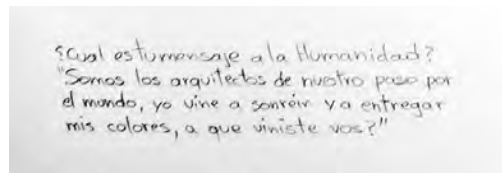 ¿Cual es tu mensaje a la Humanidad?
"Somos los arquitectos de nuestro paso por
el mundo, yo vine a sonreir y a entregar
mis colores, a que viniste vos?"